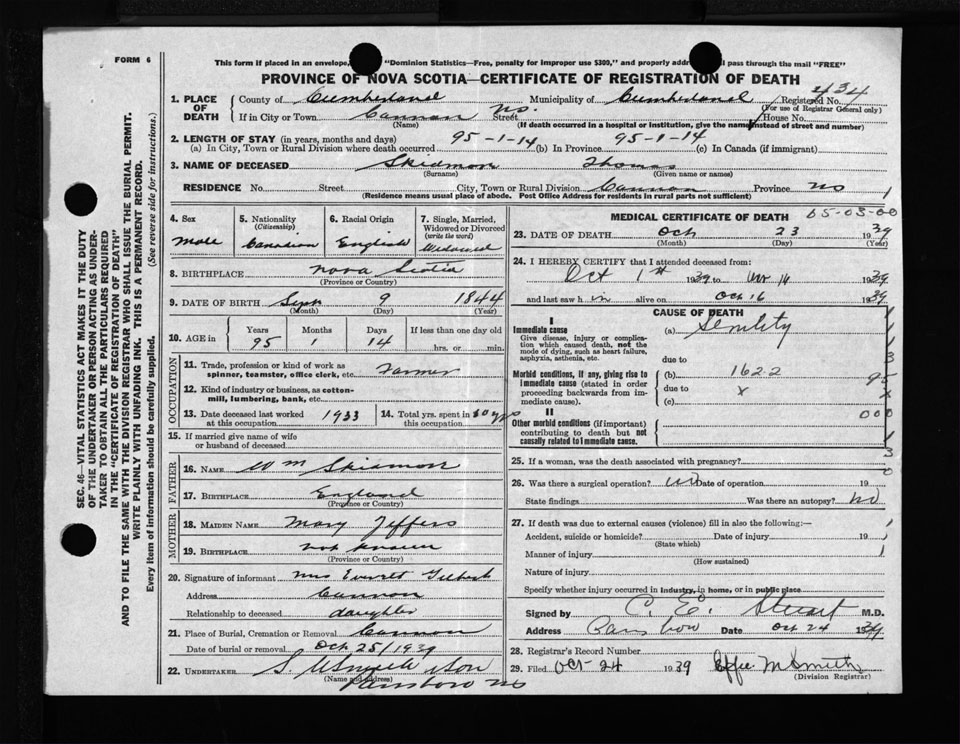 FORM 6
This form if placed in an envelope, "Dominion Statistics—Free, penalty for improper use $300," and properly addre pass through the mail "FREE"
PROVINCE OF NOVA SCOTIA—CERTIFICATE OF REGISTRATION OF DEATH
434
1. PLACE OF DEATH County of Cumberland Municipality of Cumberland Registered No.
(For use of Registrar General only)
If in City or Town Cannan Street NS. House No.
(Name) (If death occurred in a hospital or institution, give the name instead of street and number)
2. LENGTH OF STAY (in years, months and days) 95-1-14 95-1-14
(a) In City, Town or Rural Division where death occurred (b) In Province (c) In Canada (if immigrant)
3. NAME OF DECEASED Skidmon Thomas
(Surname) (Given name or names)
RESIDENCE No. Street City, Town or Rural Division Cannon Province NS 1
(Residence means usual place of abode. Post Office Address for residents in rural parts not sufficient)
4. Sex Male
5. Nationality (Citizenship) Canadian
6. Racial Origin English
7. Single, Married, Widowed or Divorced (write the word) Widowed
8. BIRTHPLACE Nova Scotia
(Province or Country)
9. DATE OF BIRTH Sept 9 1844
(Month) (Day) (Year)
10. AGE in Years Months Days If less than one day old
95 1 14 hrs. or min.
OCCUPATION
11. Trade, profession or kind of work as spinner, teamster, office clerk, etc. Farmer
12. Kind of industry or business, as cotton-mill, lumbering, bank, etc.
13. Date deceased last worked at this occupation 1933
14. Total yrs. spent in
15. If married give name of wife or husband of deceased
FATHER
16. NAME Wm Skidmon
17. BIRTHPLACE England
(Province or Country)
MOTHER
18. MAIDEN NAME Mary Jeffers
19. BIRTHPLACE not known
(Province or Country)
20. Signature of informant Mrs Everett
Address Cannon
Relationship to deceased daughter
21. Place of Burial, Cremation or Removal Cannon
Date of burial or removal Oct 25/1939
22. UNDERTAKER Son
(Name and address)
Parrsboro NS
MEDICAL CERTIFICATE OF DEATH 65-03-00
23. DATE OF DEATH Oct 23 1939
(Month) (Day) (Year)
24. I HEREBY CERTIFY that I attended deceased from:
Oct 1st 1939 to 16 1939
and last saw h im alive on Oct 16 1939
CAUSE OF DEATH
I
Immediate cause (a) Senility
Give disease, injury or complication which caused death, not the mode of dying, such as heart failure, asphyxia, asthenia, etc.
due to
Morbid conditions, if any, giving rise to immediate cause (stated in order proceeding backwards from immediate cause).
(b) 162-2
due to x
(c)
II
Other morbid conditions (if important) contributing to death but not causally related to immediate cause.
25. If a woman, was the death associated with pregnancy?
26. Was there a surgical operation? no Date of operation 19
State findings Was there an autopsy? no
27. If death was due to external causes (violence) fill in also the following:—
Accident, suicide or homicide? Date of injury 19
(State which)
Manner of injury
(How sustained)
Nature of injury
Specify whether injury occurred in industry, in home, or in public place
Signed by C. E. Stuart M.D.
Address Date Oct 24 1939
28. Registrar's Record Number
29. Filed Oct-24 1939 Effie M Smith
(Division Registrar)
SEC. 46—VITAL STATISTICS ACT MAKES IT THE DUTY
OF THE UNDERTAKER OR PERSON ACTING AS UNDER-
TAKER TO OBTAIN ALL THE PARTICULARS REQUIRED
IN THE "CERTIFICATE OF REGISTRATION OF DEATH"
AND TO FILE THE SAME WITH THE DIVISION REGISTRAR WHO SHALL ISSUE THE BURIAL PERMIT.
WRITE PLAINLY WITH UNFADING INK. THIS IS A PERMANENT RECORD.
Every item of information should be carefully supplied. (See reverse side for instructions.)